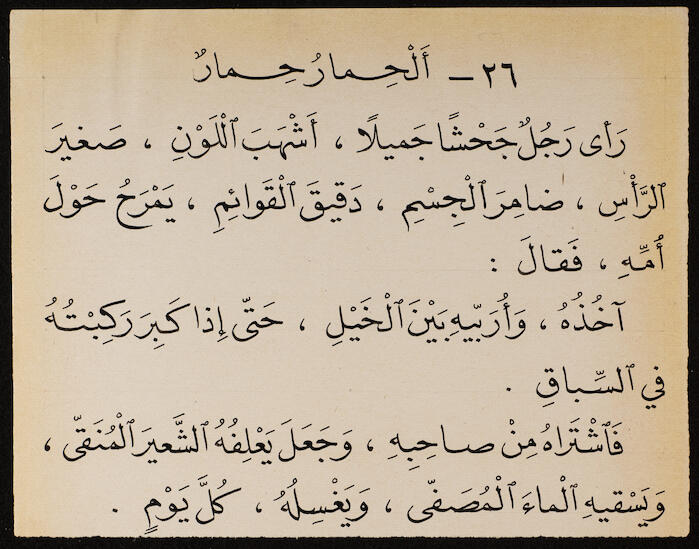 ٢٦ - أَلْحِمارُ حِمارٌ
رَأى رَجُلٌ جَحْشًا جَميلًا ، أَشْهَبَ ٱللَّوْنِ ، صَغيرَ
ٱلرَّأْسِ ، ضامِرَ ٱلْجِسْمِ ، دَقيقَ ٱلْقَوائِمِ ، يَمْرَحُ حَوْلَ
أُمِّهِ ، فَقالَ :
آخُذُهُ ، وَأُرَبّيهِ بَيْنَ ٱلْخَيْلِ ، حَتّى إِذا كَبِرَ رَكِبْتُهُ
في ٱلسِّباقِ .
فَٱشْتَراهُ مِنْ صاحِبِهِ ، وَجَعَلَ يَعْلِفُهُ ٱلشَّعيرَ ٱلْمُنَقّى ،
وَيَسْقيهِ ٱلْماءَ ٱلْمُصَفّى ، وَيَغْسِلُهُ ، كُلَّ يَوْمٍ .